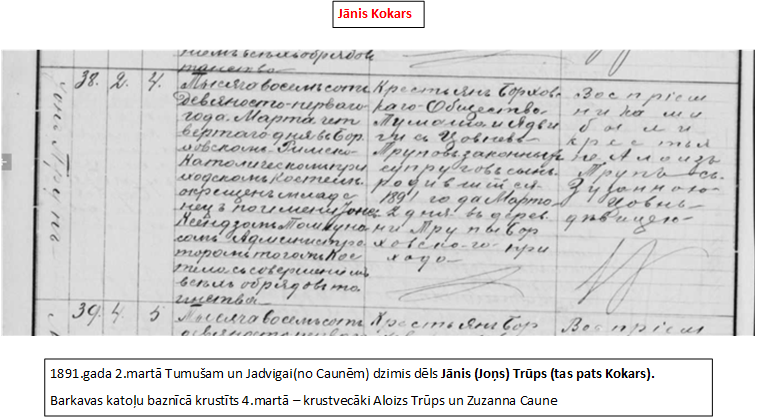 Jānis Kokars
таинства
38. 2. 4.
Тысяча восемьсотъ
девяносто перваго
года Марта чет
вертаго дня въ Бор
ховскомъ Римско-
Католическомъ при
ходскомъ Костелѣ
окрещенъ младе
нецъ по имени
Ксендзомъ
Администра
торомъ того-же Кос
тела съ совершеніемъ
всѣхъ обрядовъ та
инства
Крестьянъ Борхов
скаго Общества
Тумаша и Ядви
ги съ Цовновъ
Труповъ законныхъ
супруговъ сынъ
родившійся
1891 года Марта
2 дня въ дерев
ни Трупы Бор
ховскаго при
хода
Воспріем
никами
были
крестья
не Алоизъ
Трупъ съ
Зузанною
Цовнъ
дѣвицею
39. 4. 5
Тысяча восемьсотъ
Крестьянъ Бор
Воспріем
1891.gada 2.martā Tumušam un Jadvigai(no Caunēm) dzimis dēls Jānis (Joņs) Trūps (tas pats Kokars).
Barkavas katoļu baznīcā krustīts 4.martā – krustvecāki Aloizs Trūps un Zuzanna Caune